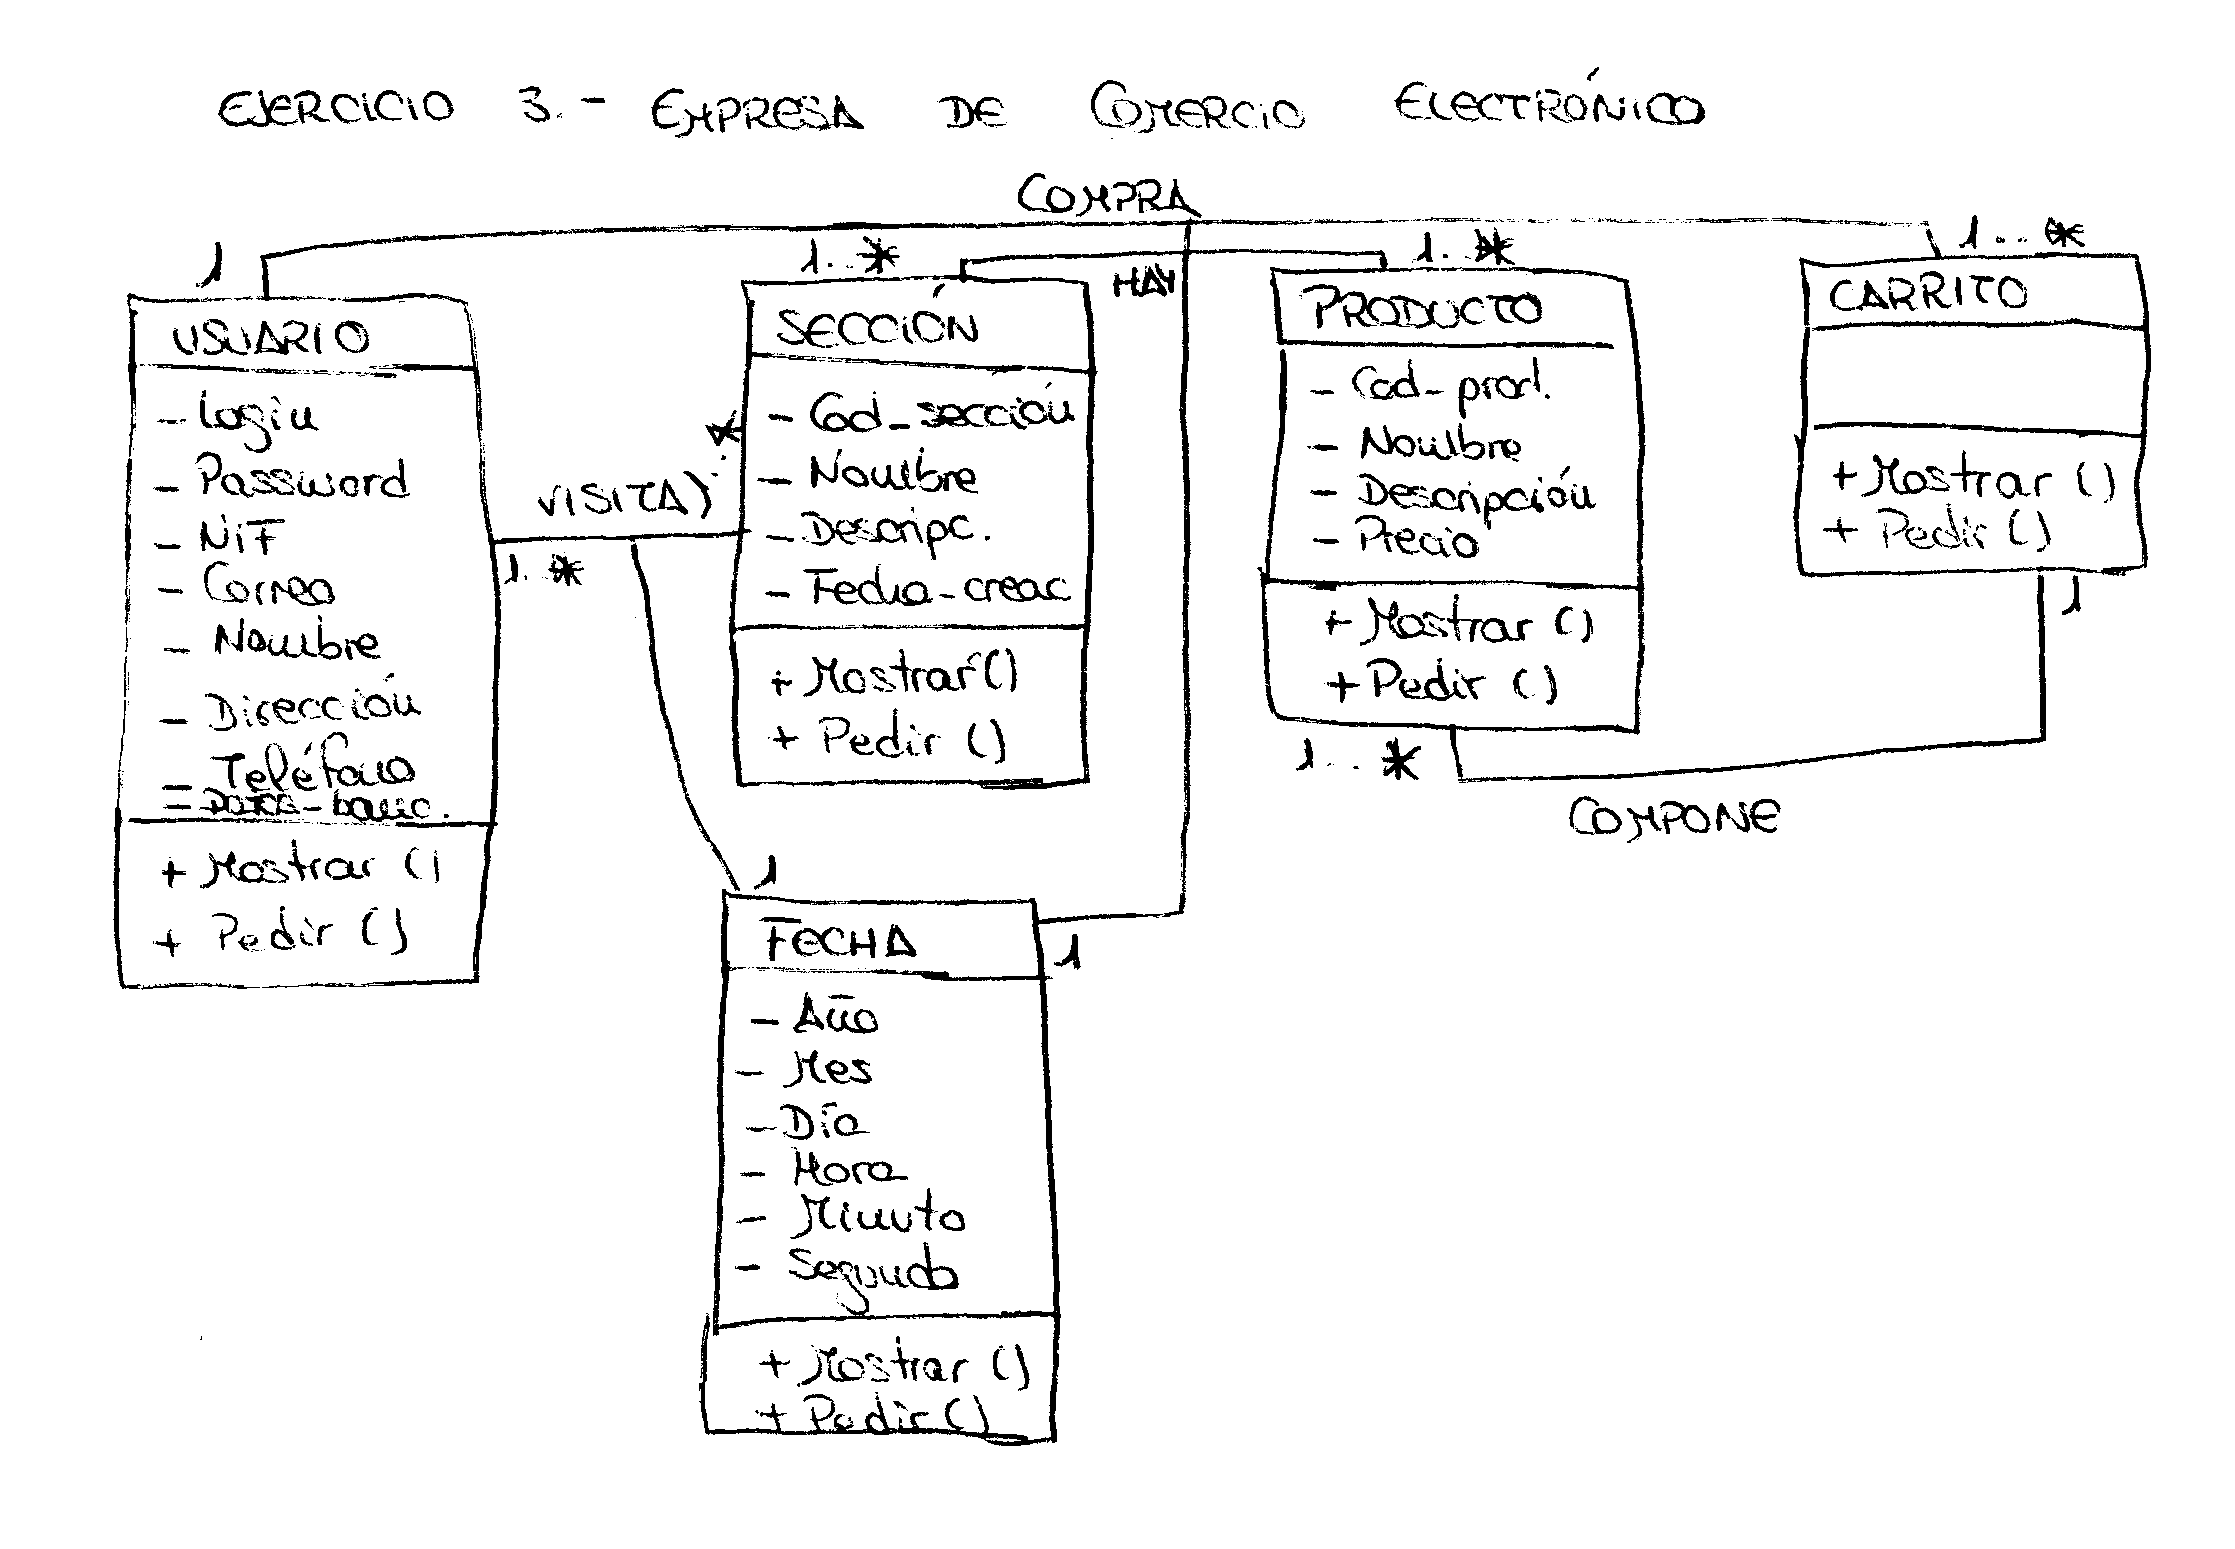 EJERCICIO 3.- EMPRESA DE COMERCIO ELECTRÓNICO
COMPRA
1
1..*
HAY
1..*
1..*
USUARIO
- Login
- Password
- NIF
- Correo
- Nombre
- Dirección
- Teléfono
+ Mostrar ()
+ Pedir ()
VISITA
1..*
*
SECCIÓN
- Cod_sección
- Nombre
- Descripc.
- Fecha-creac
+ Mostrar ()
+ Pedir ()
PRODUCTO
- Cod-prod.
- Nombre
- Descripción
- Precio
+ Mostrar ()
+ Pedir ()
1..*
CARRITO
+ Mostrar ()
+ Pedir ()
1
COMPONE
1
FECHA
1
- Año
- Mes
- Día
- Hora
- Minuto
- Segundo
+ Mostrar ()
+ Pedir ()